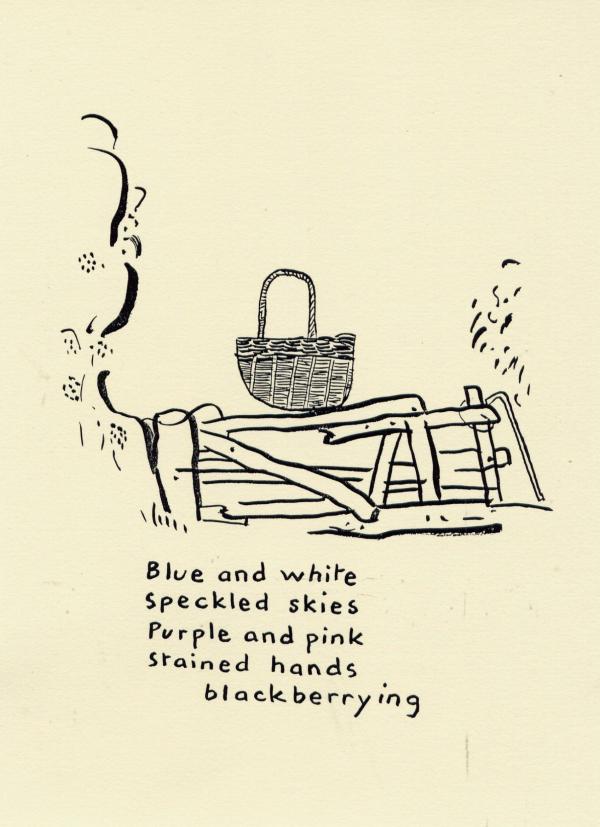 Blue and white
Speckled skies
Purple and pink
stained hands
blackberrying